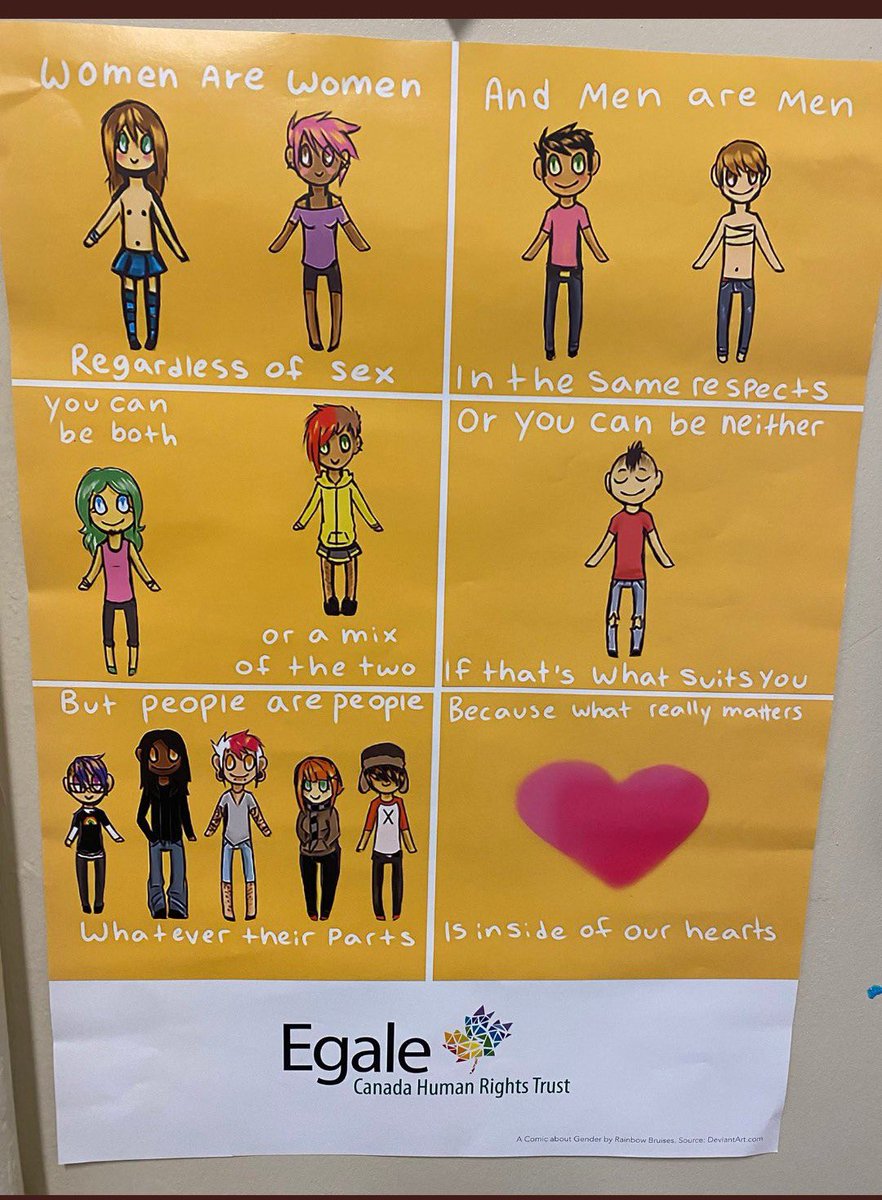 Women Are Women
Regardless of sex
And Men are Men
In the same respects
you can
be both
or a mix
of the two
Or you can be neither
If that's what suits you
But people are people
Whatever their Parts
Because what really matters
Is inside of our hearts
X
Egale
Canada Human Rights Trust
A Comic about Gender by Rainbow Bruises. Source: DeviantArt.com